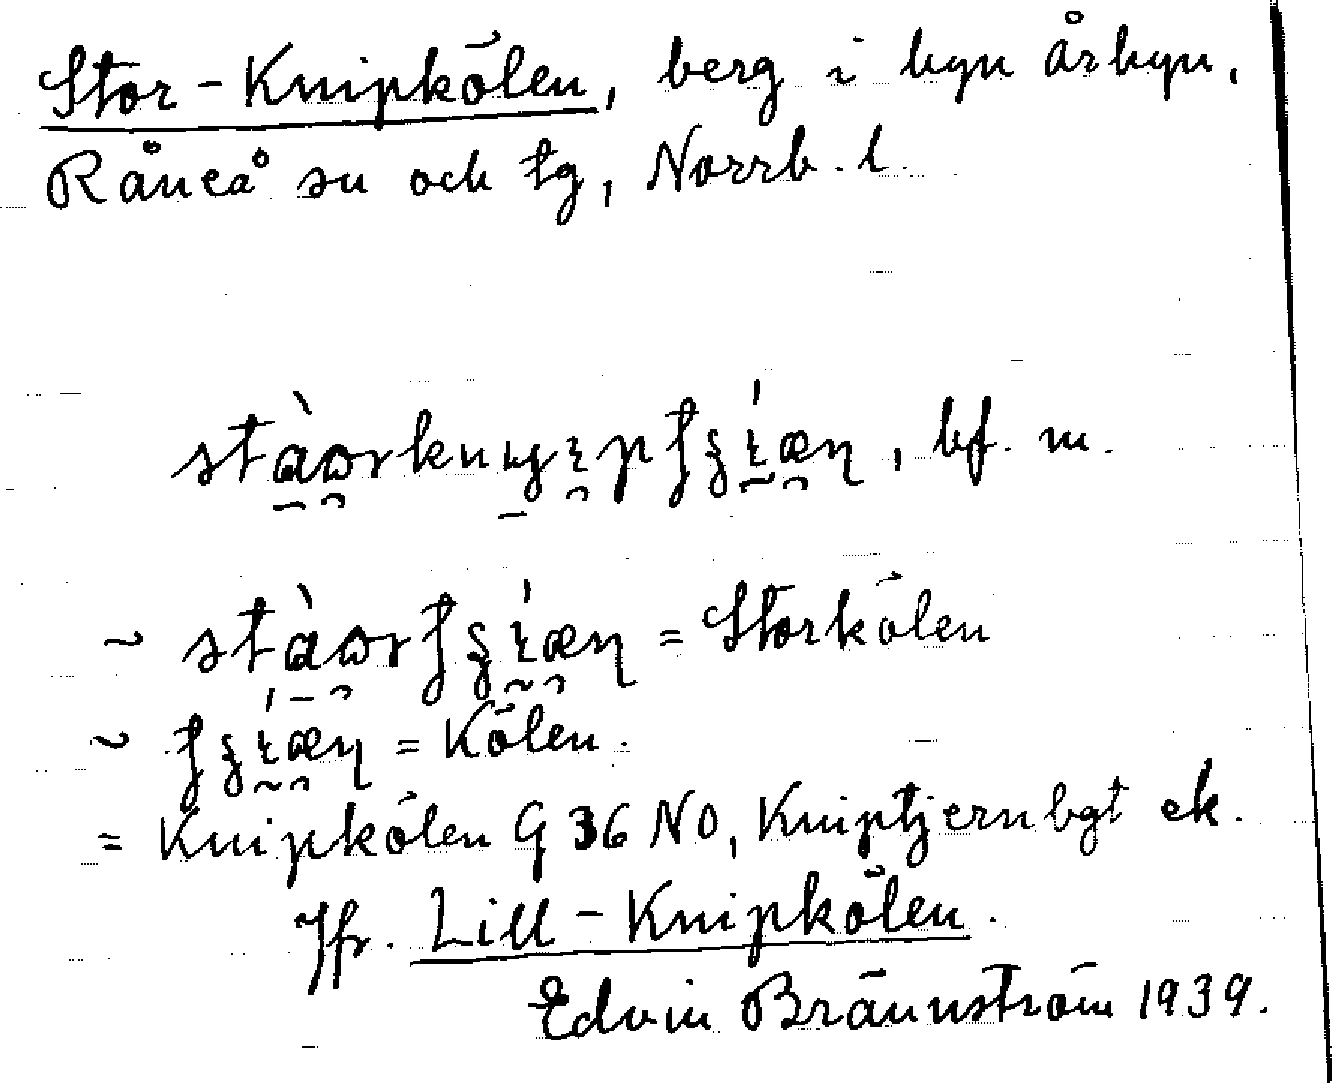 Stor-Knipkölen, berg i byn Årbyn,
Råneå sn och tg, Norrb. l.
, bf. m.
~ = Storkölen
~ = Kölen.
= Knipkölen G 36 NO, Kniptjernbgt ek.
Jfr. Lill-Knipkölen.
Edvin Brännström 1939.